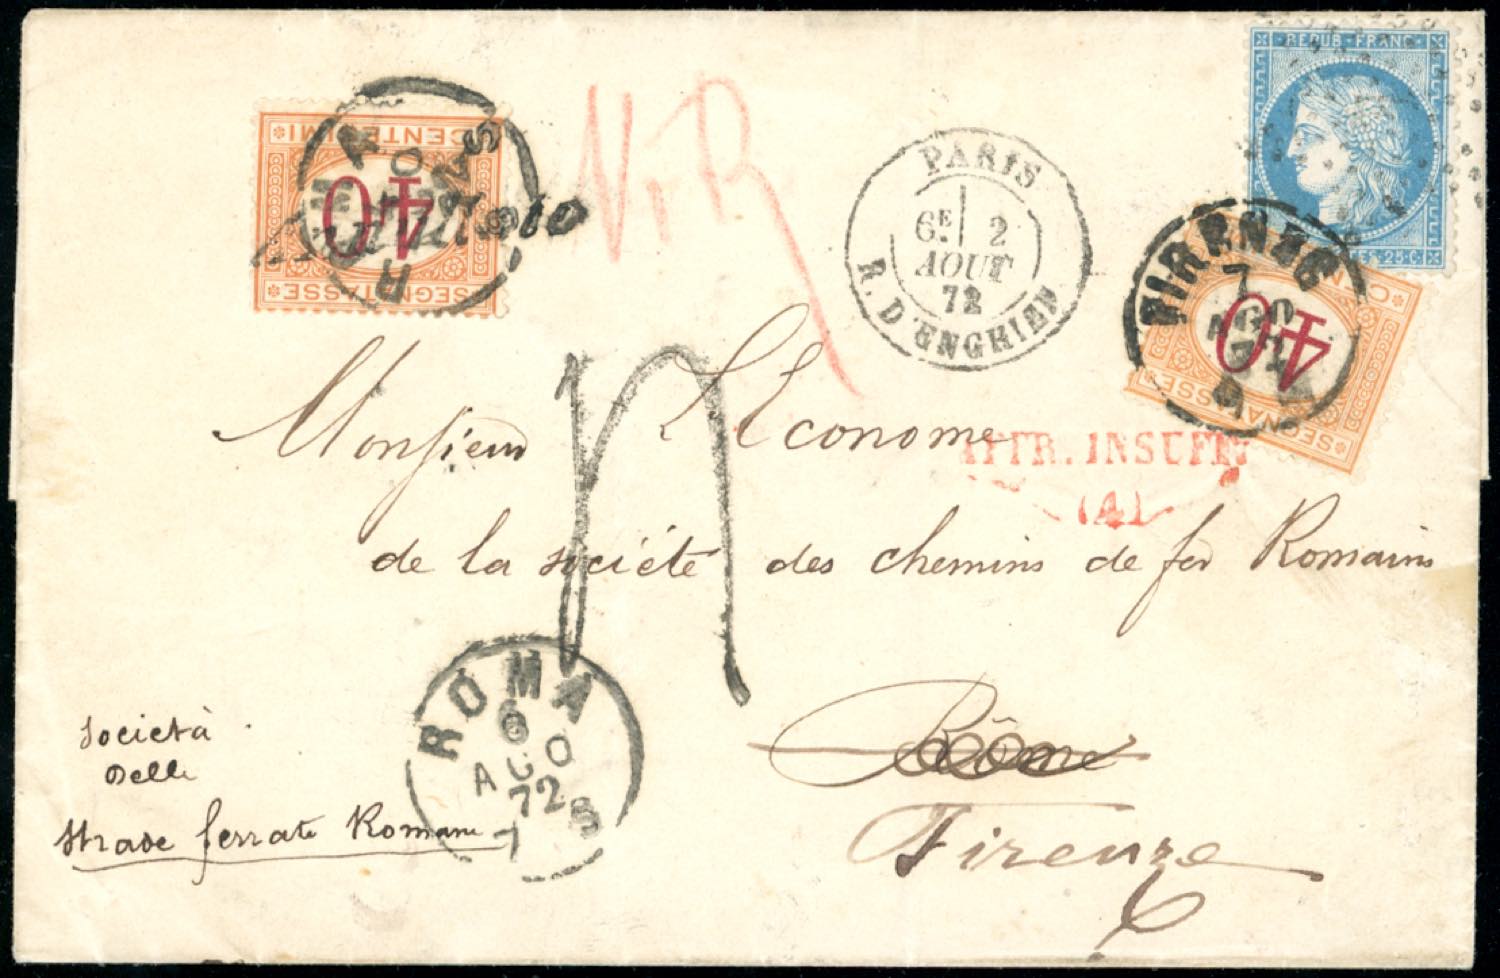 REPUB·FRANC·
25·C·
SEGNATASSE
40
CENTESIMI
N.R
PARIS
6E 2
AOUT
72
R. D'ENGHIEN
FIRENZE
7
AGO
72
SEGNATASSE
40
AFFR. INSUFF
(A)
n
Monsieur L'Econome
de la société des chemins de fer Romains
Rôme
Firenze
ROMA
6
AGO
72
7 S
Società
delle
strade ferrate Romane